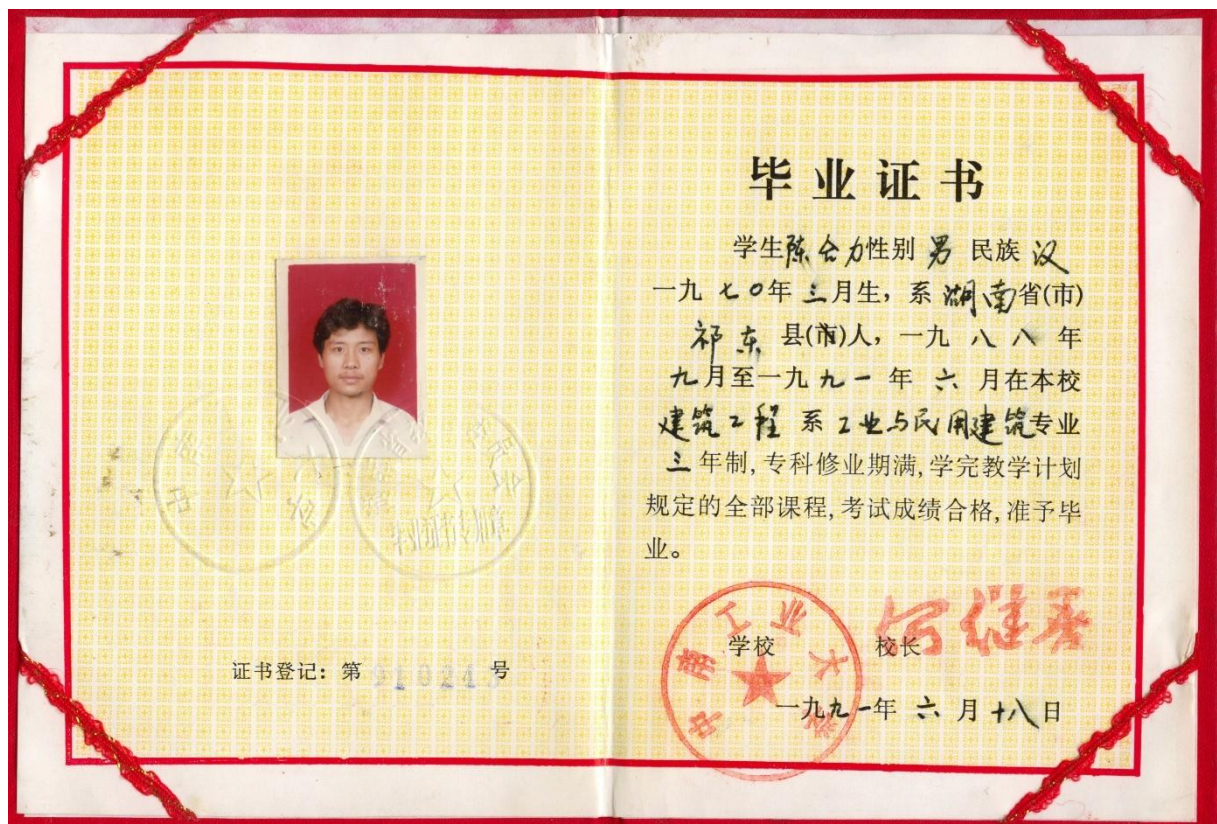 毕业证书
学生陈合力性别 男 民族 汉
一九七〇年 三月生，系 湖南省(市)
祁东 县(市)人，一九 八八 年
九月至一九九一 年 六 月在本校
建筑工程 系 工业与民用建筑专业
三 年制,专科修业期满,学完教学计划
规定的全部课程,考试成绩合格,准予毕
业。
中南工业大学
学校 校长 何继善
一九九一年 六 月十八日
证书登记：第 号
毕业证书专用章